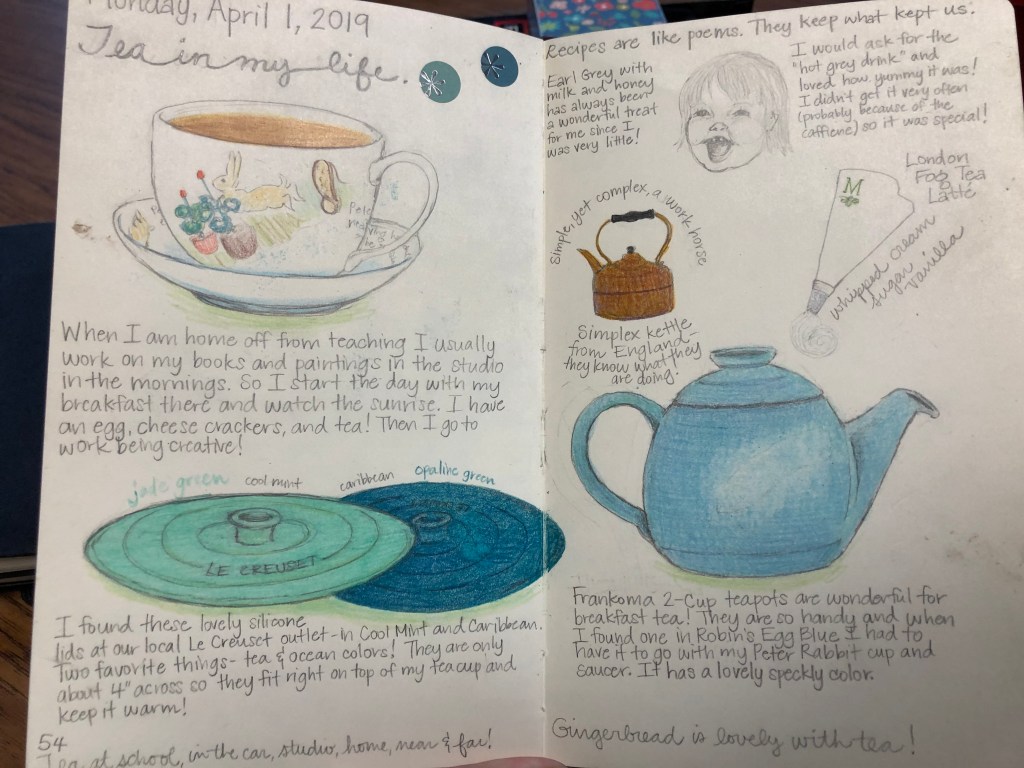 Monday, April 1, 2019
Tea in my life.
When I am home off from teaching I usually
work on my books and paintings in the studio
in the mornings. So I start the day with my
breakfast there and watch the sunrise. I have
an egg, cheese crackers, and tea! Then I go to
work being creative!
jade green
cool mint
caribbean
opaline green
LE CREUSET
I found these lovely silicone
lids at our local Le Creuset outlet-in Cool Mint and Caribbean.
Two favorite things- tea & ocean colors! They are only
about 4" across so they fit right on top of my teacup and
keep it warm!
54
Tea at school, in the car, studio, home, near & far!
Recipes are like poems. They keep what kept us.
Earl Grey with
milk and honey
has always been
a wonderful treat
for me since I
was very little!
I would ask for the
"hot grey drink" and
loved how yummy it was!
I didn't get it very often
(probably because of the
caffiene) so it was special!
London
Fog Tea
Latte
M
whipped cream
sugar
vanilla
Simple, yet complex, a work horse
Simplex kettle
from England,
they know what they
are doing.
Frankoma 2-Cup teapots are wonderful for
breakfast tea! They are so handy and when
I found one in Robin's Egg Blue I had to
have it to go with my Peter Rabbit cup and
saucer. It has a lovely speckly color.
Gingerbread is lovely with tea!